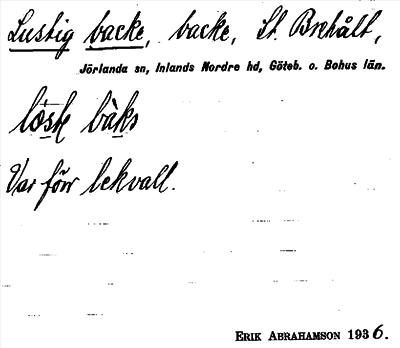 Lustig backe, backe, St. Brehålt,
Jörlanda sn, Inlands Nordre hd, Göteb. o. Bohus län.
bàks
Var förr lekvall.
ERIK ABRAHAMSON 1936.